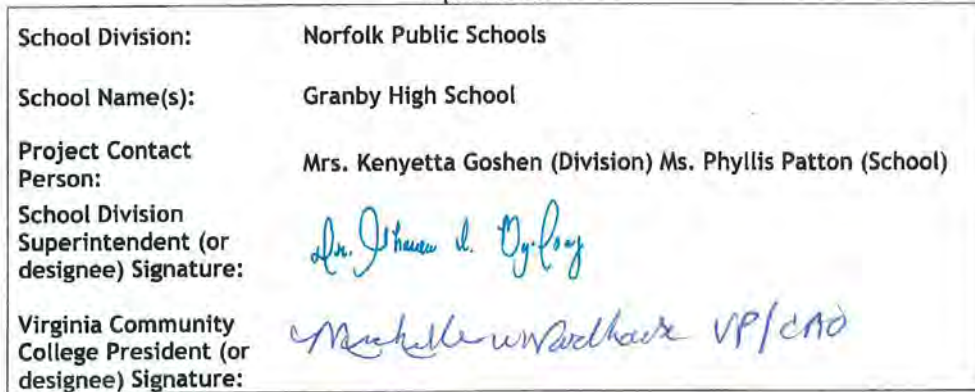 School Division: Norfolk Public Schools
School Name(s): Granby High School
Project Contact
Person: Mrs. Kenyetta Goshen (Division) Ms. Phyllis Patton (School)
School Division
Superintendent (or
designee) Signature: Dr.
Virginia Community
College President (or
designee) Signature: Michelle VP/CAO